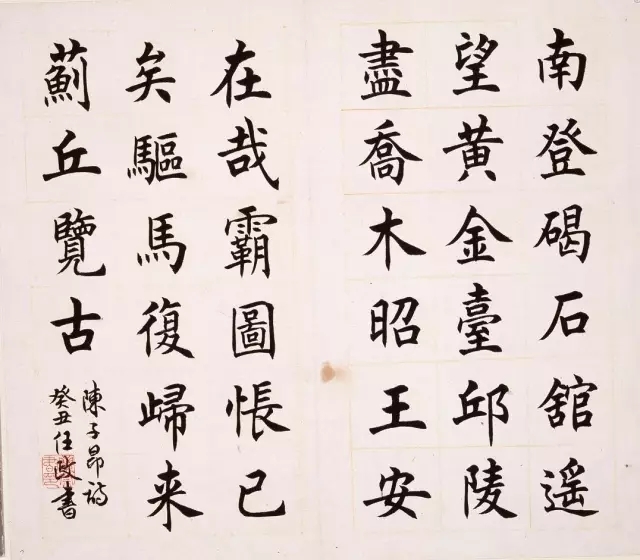 南登碣石舘遥
望黄金臺邱陵
盡喬木昭王安
在哉霸圖悵已
矣驅馬復歸来
薊丘覽古
陳子昂詩
癸丑任政書